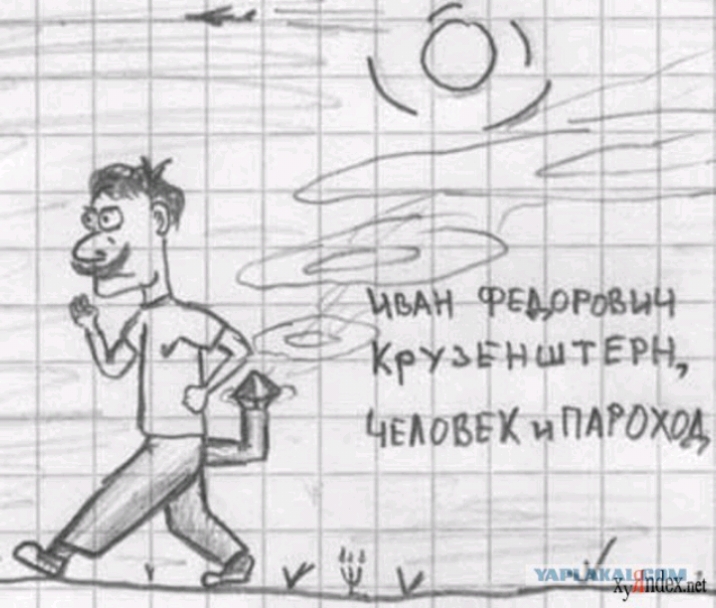 ИВАН ФЕДОРОВИЧ
КРУЗЕНШТЕРН,
ЧЕЛОВЕК и ПАРОХОД
YAPLAKAL.COM
хуЯndex.net